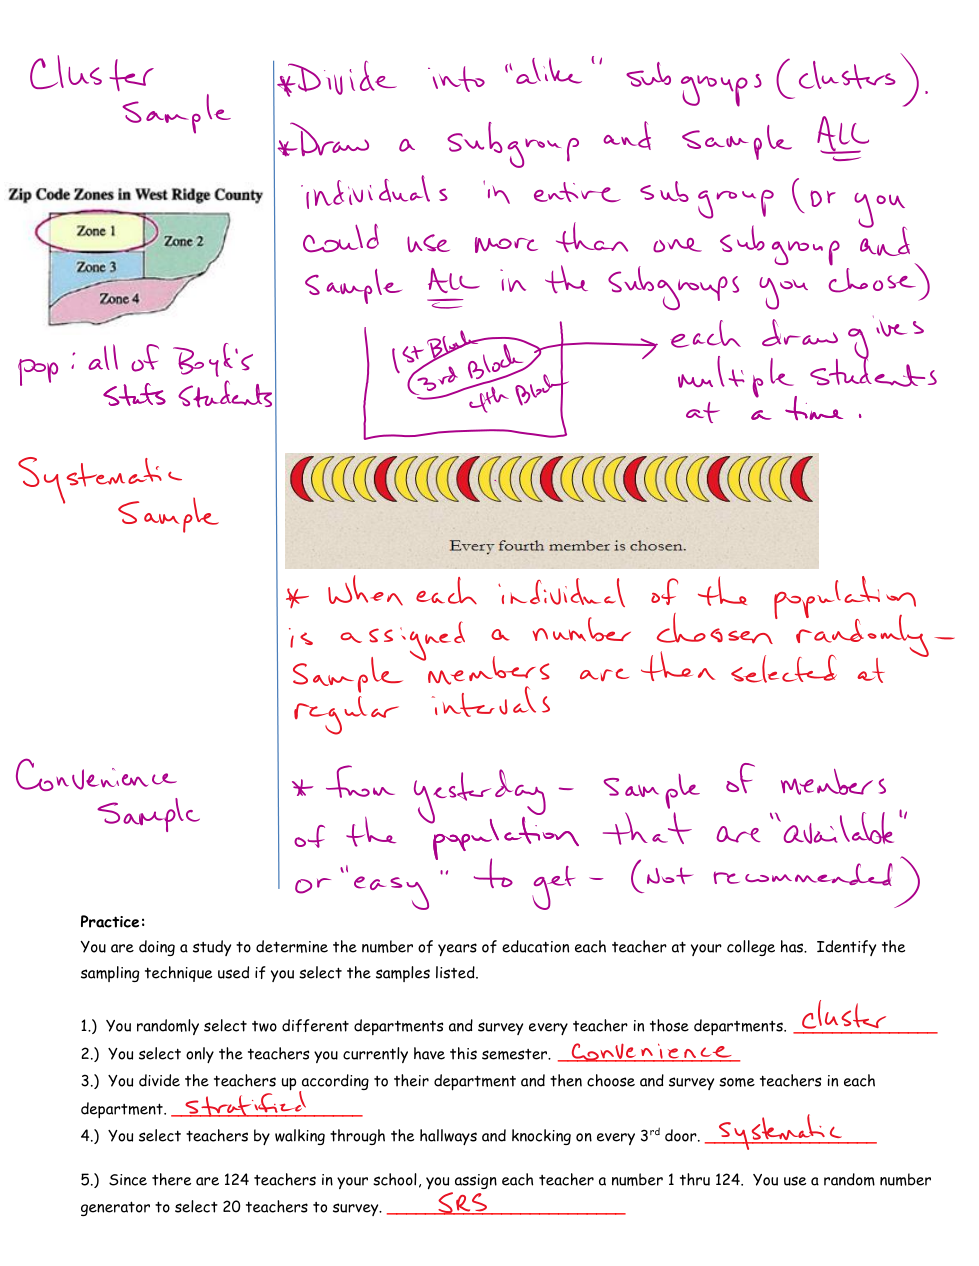 Cluster
Sample
*Divide into "alike" subgroups (clusters).
*Draw a subgroup and sample ALL
individuals in entire subgroup (or you
could use more than one subgroup and
sample ALL in the subgroups you choose)
Zip Code Zones in West Ridge County
Zone 1
Zone 2
Zone 3
Zone 4
pop: all of Boyk's
Stats Students
1st Block
3rd Block
4th Block
each draw gives
multiple students
at a time.
Systematic
Sample
Every fourth member is chosen.
* When each individual of the population
is assigned a number chossen randomly-
Sample members are then selected at
regular intervals
Convenience
Sample
* from yesterday - sample of members
of the population that are "available"
or "easy" to get - (Not recommended)
Practice:
You are doing a study to determine the number of years of education each teacher at your college has. Identify the
sampling technique used if you select the samples listed.
1.) You randomly select two different departments and survey every teacher in those departments. cluster
2.) You select only the teachers you currently have this semester. Convenience
3.) You divide the teachers up according to their department and then choose and survey some teachers in each
department. Stratified
4.) You select teachers by walking through the hallways and knocking on every 3rd door. Systematic
5.) Since there are 124 teachers in your school, you assign each teacher a number 1 thru 124. You use a random number
generator to select 20 teachers to survey. SRS